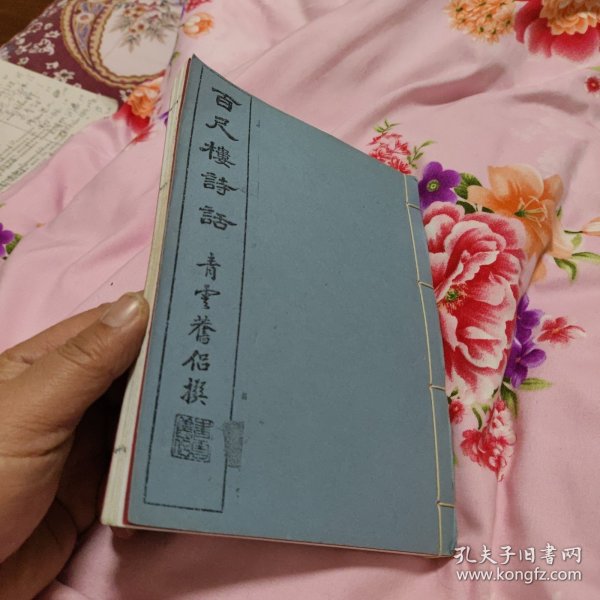 百尺樓詩話
青雲舊侶撰
孔夫子旧书网
www.kongfz.com